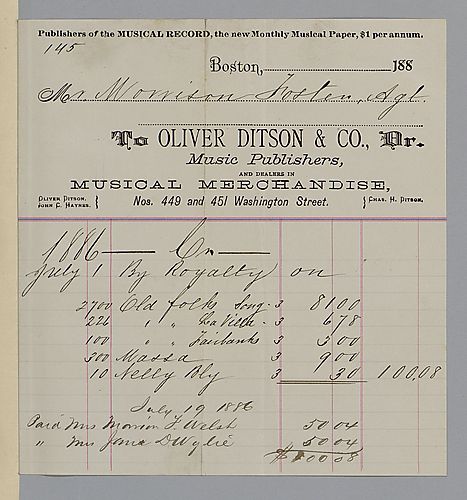 Publishers of the MUSICAL RECORD, the new Monthly Musical Paper, $1 per annum.
145
Boston, 188
Mr. Morrison Foster, Agt.
To OLIVER DITSON & CO., Dr.
Music Publishers,
AND DEALERS IN
MUSICAL MERCHANDISE,
OLIVER DITSON.
JOHN C. HAYNES.
Nos. 449 and 451 Washington Street.
CHAS. H. DITSON.
1886 — Cr —
July 1 By Royalty on
2700 Old folks Song - 3 81 00
226 " " La Ville - 3 6 78
100 " " Fairbanks 3 3 00
300 Massa 3 9 00
10 Nelly Bly 3 30 100,08
July 19 1886
Paid Mrs Marion F. Welsh 50 04
" Mrs Jane D Wylie 50 04
$100 08